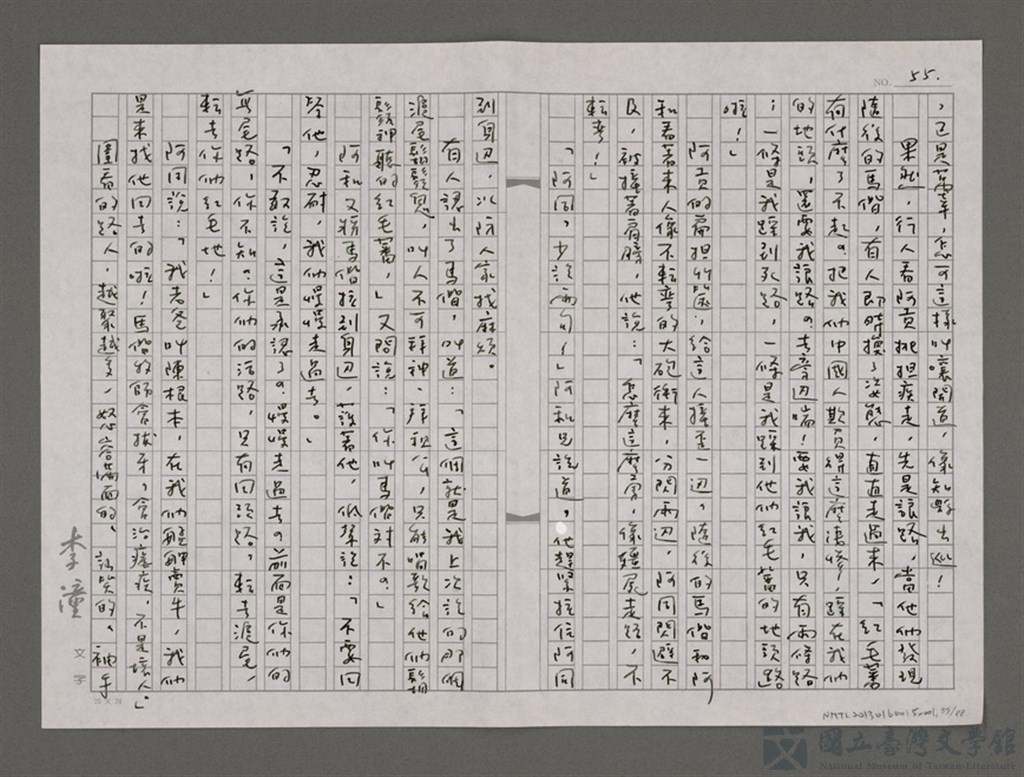 NO. 55.
，已是萬幸，怎可這樣叫嚷開道，像知縣出巡！
果然，行人看阿貢挑担疾走，先是讓路，當他們發現
隨後的馬偕，有人即時換了姿態，直直走過來，「紅毛蕃
有什麼了不起？把我們中國人欺負得這麼悽慘，踩在我們
的地頭，還要我讓路？去旁边喘！要我讓我，只有兩條路
：一條是我踩到死路，一條是我踩到他們紅毛蕃的地頭路
啦！」
阿貢的扁担竹籃，給這人撞歪一边，隨後的馬偕和阿
和看著來人像不轉彎的大砲衝來，分閃兩边，阿同閃避不
及，被撞著肩膀，他說：「怎麼這麼勇，像殭屍走路，不
轉彎！」
「阿同，少說兩句，」阿和兄說道，他趕緊拉住阿同
到身边，以防人家找麻煩。
有人認出了馬偕，叫道：「這個就是我上次說的那個
滬尾鬍鬚鬼，叫人不可拜神、拜祖公，只能唱歌給他們鬍
鬚神聽的紅毛蕃，」又問說：「你叫馬偕對不？」
阿和又將馬偕拉到身边，護著他，低聲說：「不要回
答他，忍耐，我們慢慢走過去。」
「不敢說，這是承認了？慢慢走過去？前面是你們的
無尾路，你不知？你們的活路，只有回頭路，轉去滬尾，
轉去你們紅毛地！」
阿同說：「我老爸叫陳根本，在我們艋舺賣牛，我們
是來找他回去的啦！馬偕牧師會拔牙，會治瘧疾，不是壞人。」
圍看的路人，越聚越多，怒容滿面的、訕笑的、袖手
李潼
文字
25 X 24
NMTL20130160015-001, 55/88
國立臺灣文學館
National Museum of Taiwan Literature